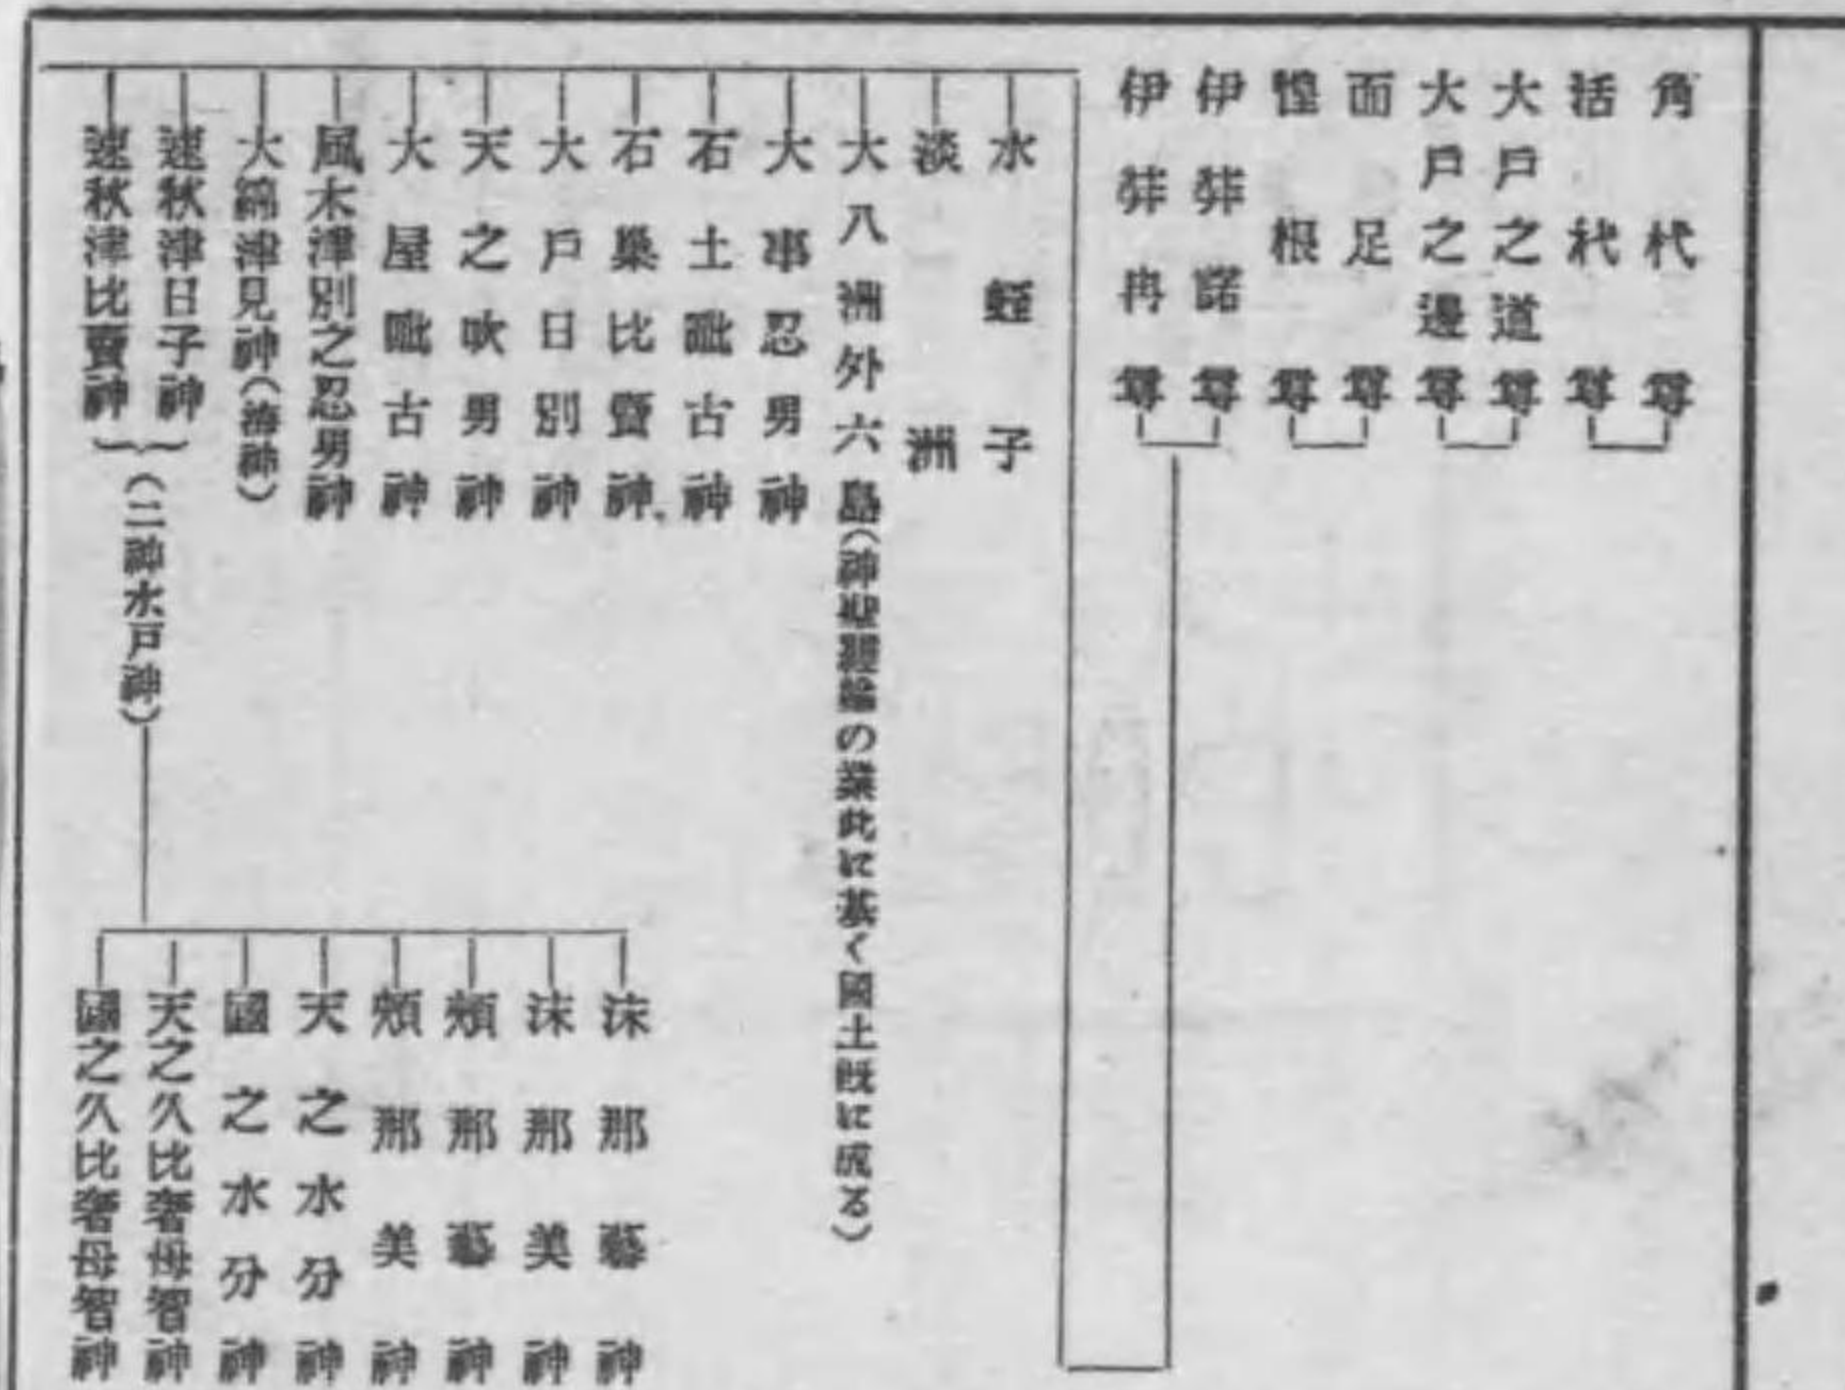 角樴尊
活樴尊
大戸之道尊
大戸之邊尊
面足尊
惶根尊
伊弉諾尊
伊弉冉尊
水蛭子
淡洲
大八洲外六島(神聖經綸の業此に基く國土既に成る)
大事忍男神
石土毗古神
石巢比賣神
大戸日別神
天之吹男神
大屋毗古神
風木津別之忍男神
大綿津見神(海神)
速秋津日子神
速秋津比賣神
(二神水戸神)
沫那藝神
沫那美神
頰那藝神
頰那美神
天之水分神
國之水分神
天之久比奢母智神
國之久比奢母智神